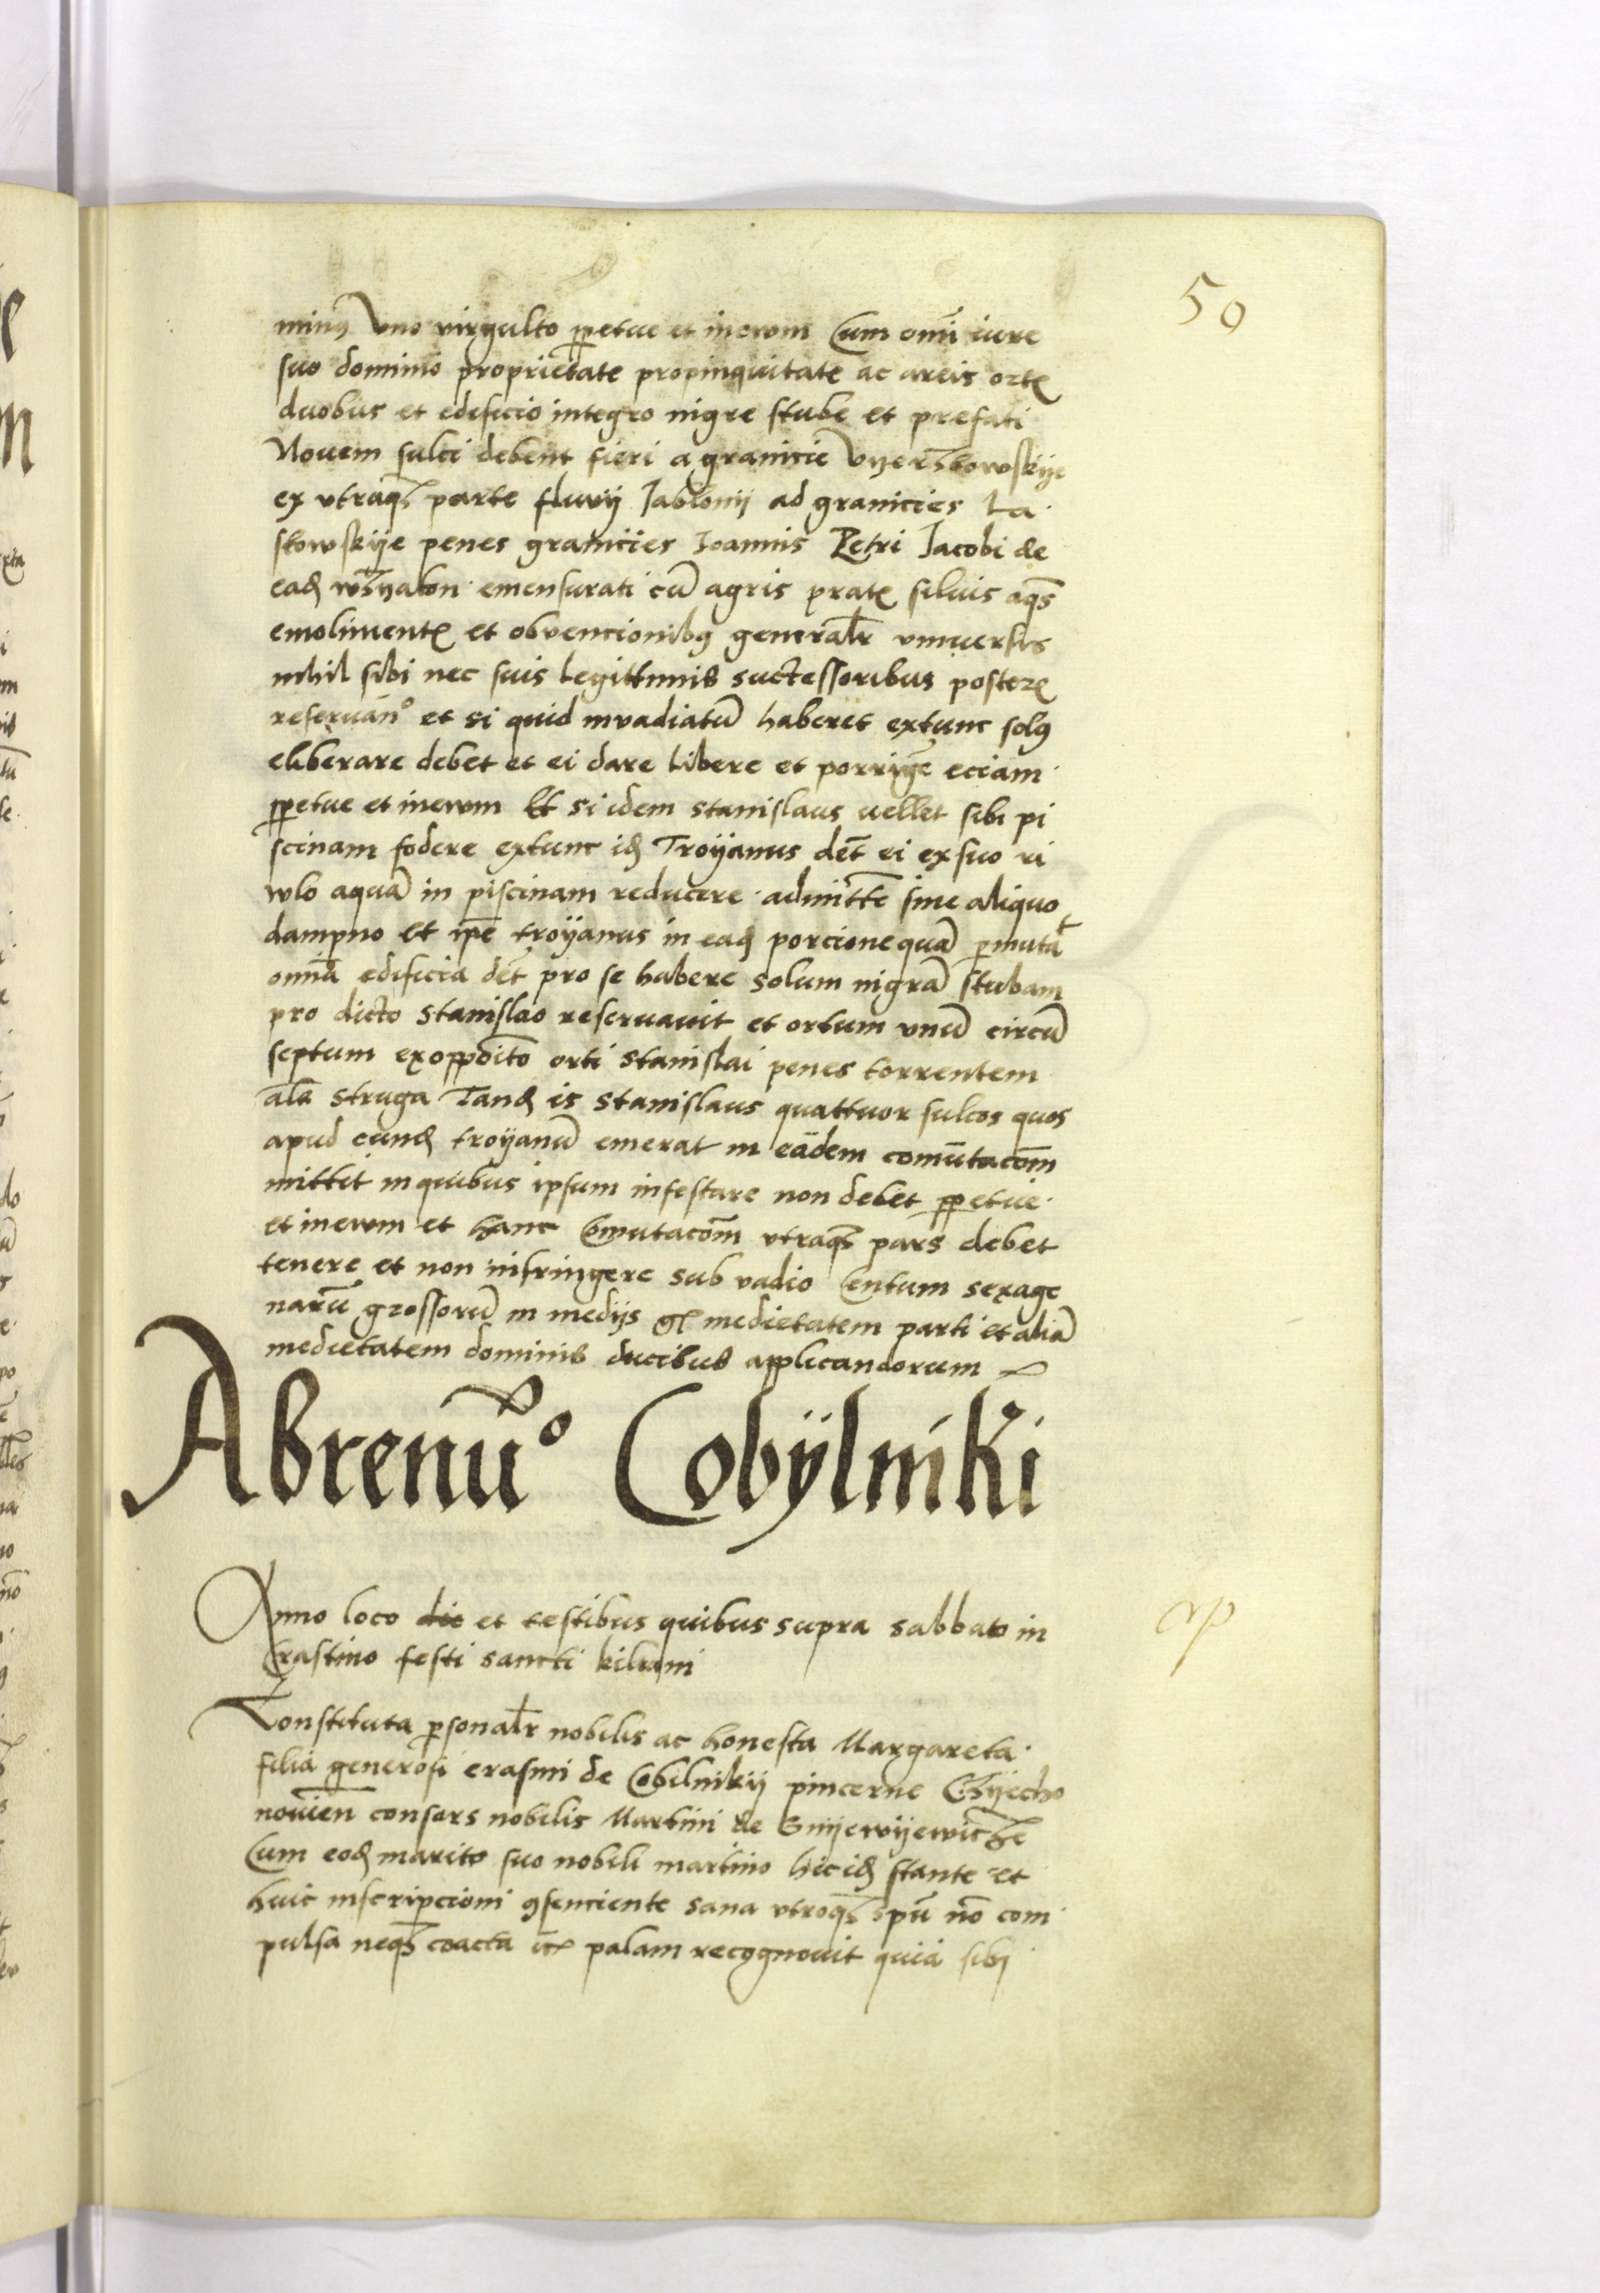 50
minus uno virgulto ppetue et inewm Cum omi iure
suo dominio proprietate propinquitate ac areis ort
duobus et edificio integro nigre stube et prefati
Nouem sulci debent fieri a granicie
ex vtraqz parte fluvij Jablonij ad granicies La
stowskije penes granicies Joannis Petri Jacobi de
ead emensurati cu agris prat siluis aqs
emoliment et obvencionibz generalr vniuersis
nihil sibi nec suis legittimis successoribus poster
reseruano et si quid invadiatu haberet extunc solus
eliberare debet et ei dare libere et porrige eciam
ppetue et inewm Et si idem Stanislaus vellet sibi pi
scinam fodere extunc id Troyanus det ei ex suo ri
wlo aqua in piscinam reducere admitte sine aliquo
dampno Et ipe troyanus in ead porcione qua pmutat
omia edificia det pro se habere solum nigra stubam
pro dicto Stanislao reseruauit et ortum vnu circu
septum ex oppoito orti Stanislai penes torrentem
als Struga Tand is Stanislaus quattuor sulcos quos
apud eund troyanu emerat in eadem comutacom
mittit in quibus ipsum infestare non debet ppetue
et inewm et hanc comutacom vtraqz pars debet
tenere et non infringere sub vadio Centum sexage
naru grossoru in medijs gr medietatem parti et alia
medietatem dominis ducibus applicandorum
Abrenuo Cobylniki
Anno loco die et testibus quibus supra sabbato in
Crastino festi sancti kiliani
ap
Constituta psonalr nobilis ac honesta Margareta
filia generosi erasmi de Cobilnikij pincerne Czyecho
nouien consors nobilis Martini de
Cum eod marito suo nobili martino hic id stante et
huic inscripcioni consenciente sana vtroqz spu no com
pulsa neqz coacta palam recognouit quia sibi